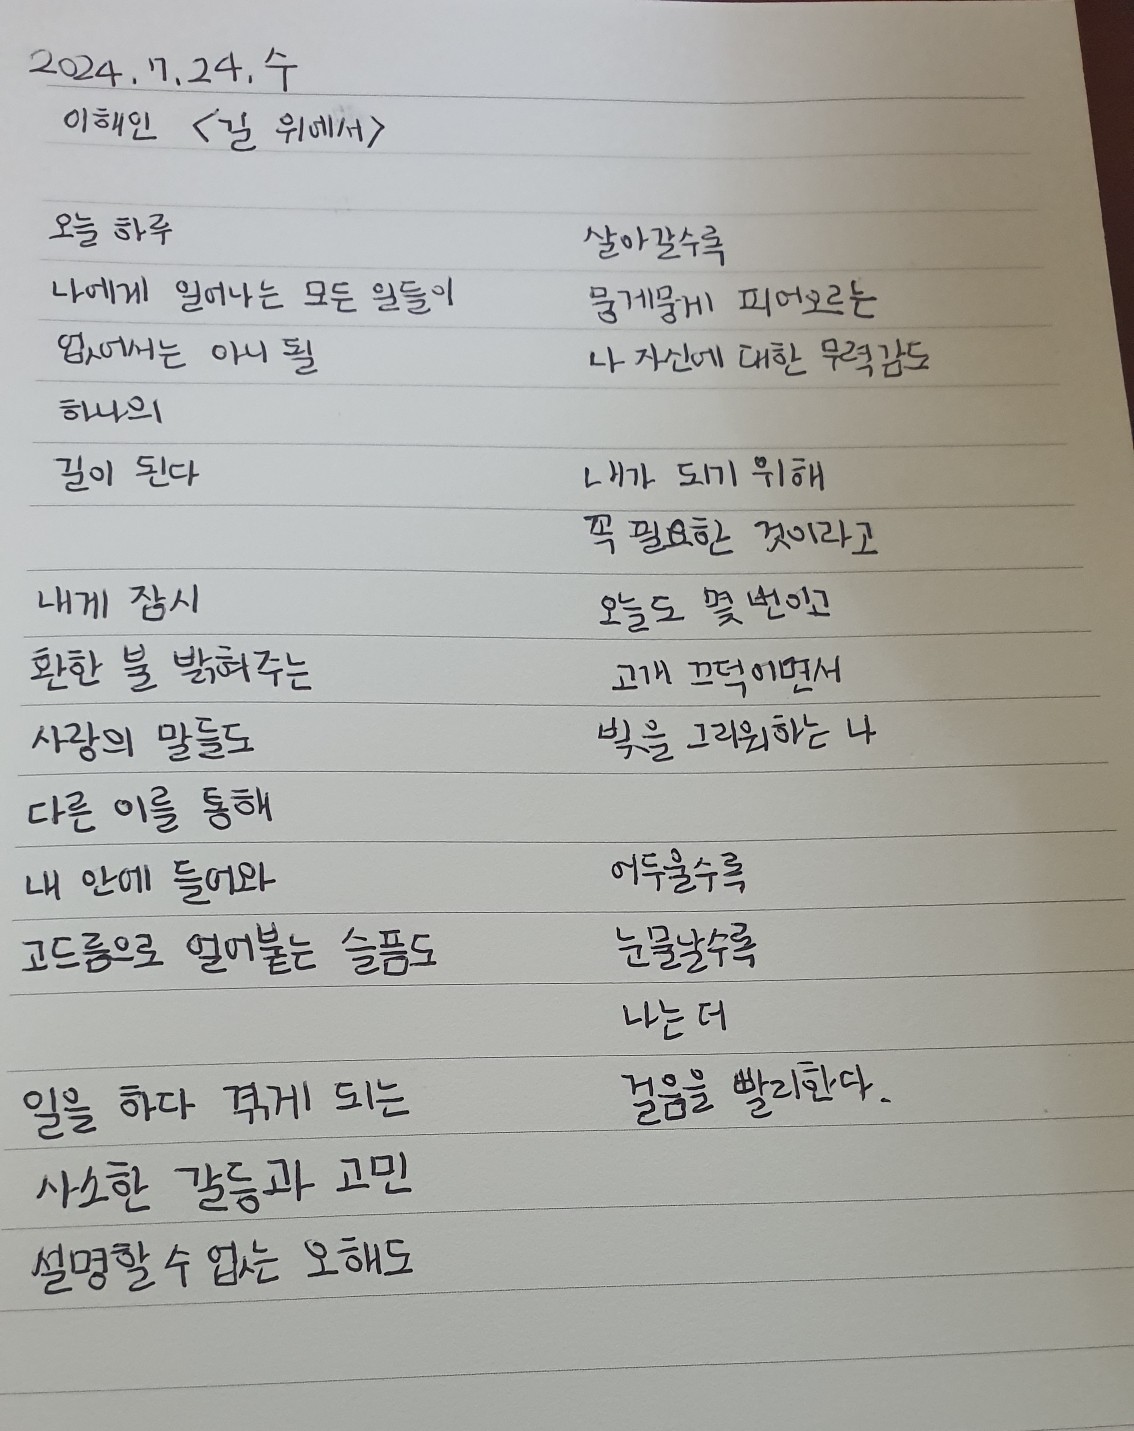 2024.7.24.수
이해인 <길 위에서>
오늘 하루
나에게 일어나는 모든 일들이
없어서는 아니 될
하나의
길이 된다
내게 잠시
환한 불 밝혀주는
사랑의 말들도
다른 이를 통해
내 안에 들어와
고드름으로 얼어붙는 슬픔도
일을 하다 겪게 되는
사소한 갈등과 고민
설명할 수 없는 오해도
살아갈수록
뭉게뭉게 피어오르는
나 자신에 대한 무력감도
내가 되기 위해
꼭 필요한 것이라고
오늘도 몇 번이고
고개 끄덕이면서
빛을 그리워하는 나
어두울수록
눈물날수록
나는 더
걸음을 빨리한다.